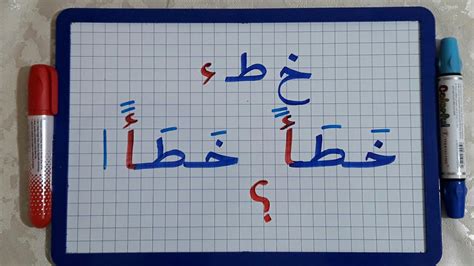 خ ط ء
خَطَأً خَطَأًا
؟